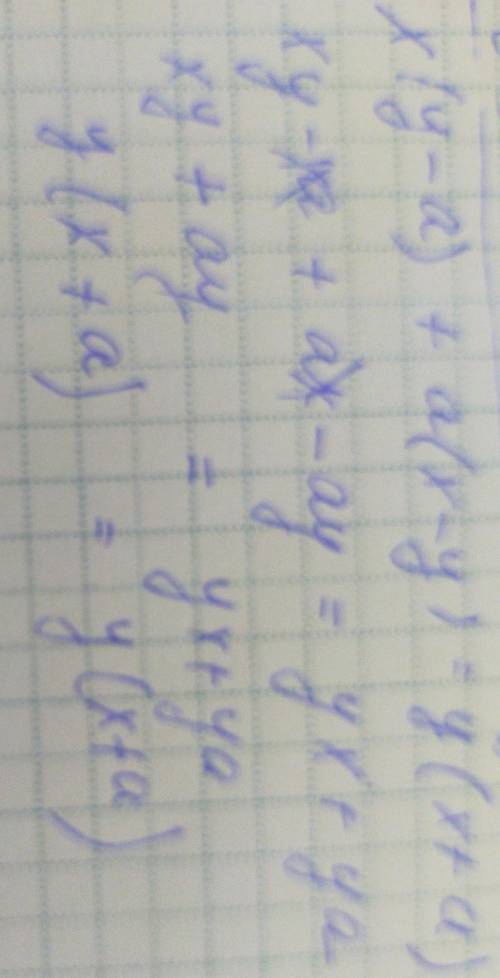 x(y-a) + a(x-y) = y(x+a)
xy - xa + ax - ay = yx + ya
xy + ay = yx + ya
y(x+a) = y(x+a)